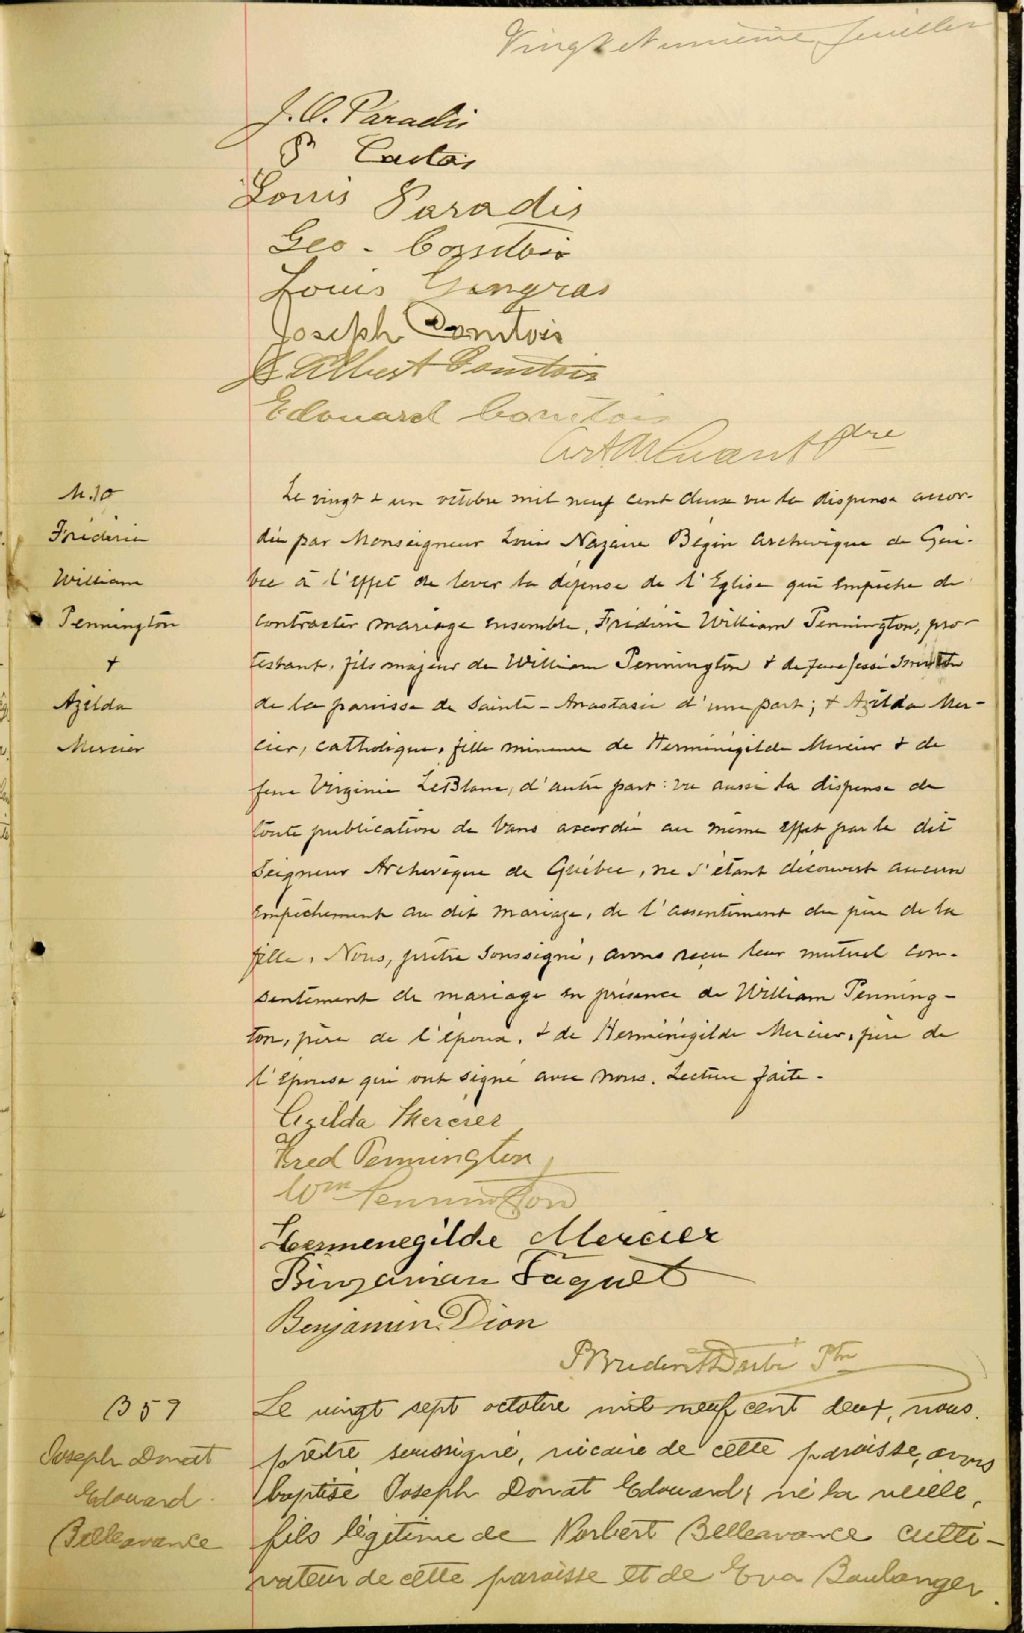 Vingt et unième feuillet
J. O. Paradis
P Castas
Louis Paradis
Geo. Comtois
Louis Gingras
Joseph Comtois
J Albert Comtois
Edouard Comtois
Ptre
M. 10
Frédéric
William
Pennington
&
Azilda
Mercier
Le vingt & un octobre mil neuf cent deux vu la dispense accor-
dée par Monseigneur Louis Nazaire Bégin archevêque de Qué-
bec à l'effet de lever la défense de l'Eglise qui empêche de
contracter mariage ensemble, Frédéric William Pennington, pro-
testant, fils majeur de William Pennington & de feue Jessé Smith
de la paroisse de Sainte-Anastasie d'une part; & Azilda Mer-
cier, catholique, fille mineure de Herménégilde Mercier & de
feue Virginie LeBlanc, d'autre part: vu aussi la dispense de
toute publication de bans accordée au même effet par le dit
Seigneur Archevêque de Québec, ne s'étant découvert aucun
empêchement au dit mariage, de l'assentiment du père de la
fille, Nous, prêtre soussigné, avons reçu leur mutuel con-
sentement de mariage en présence de William Penning-
ton, père de l'époux, & de Herménégilde Mercier, père de
l'épouse qui ont signé avec nous. Lecture faite.
Azilda Mercier
Fred Pennington
Wm Pennington
Hermenegilde Mercier
Binjamian Faquet
Benjamin Dion
Ptre
B 59
Joseph Donat
Edouard
Belleavance
Le vingt sept octobre mil neuf cent deux, nous
prêtre soussigné, vicaire de cette paroisse, avons
baptisé Joseph Donat Edouard, né la veille,
fils légitime de Norbert Belleavance culti-
vateur de cette paroisse et de Eva Boulanger.